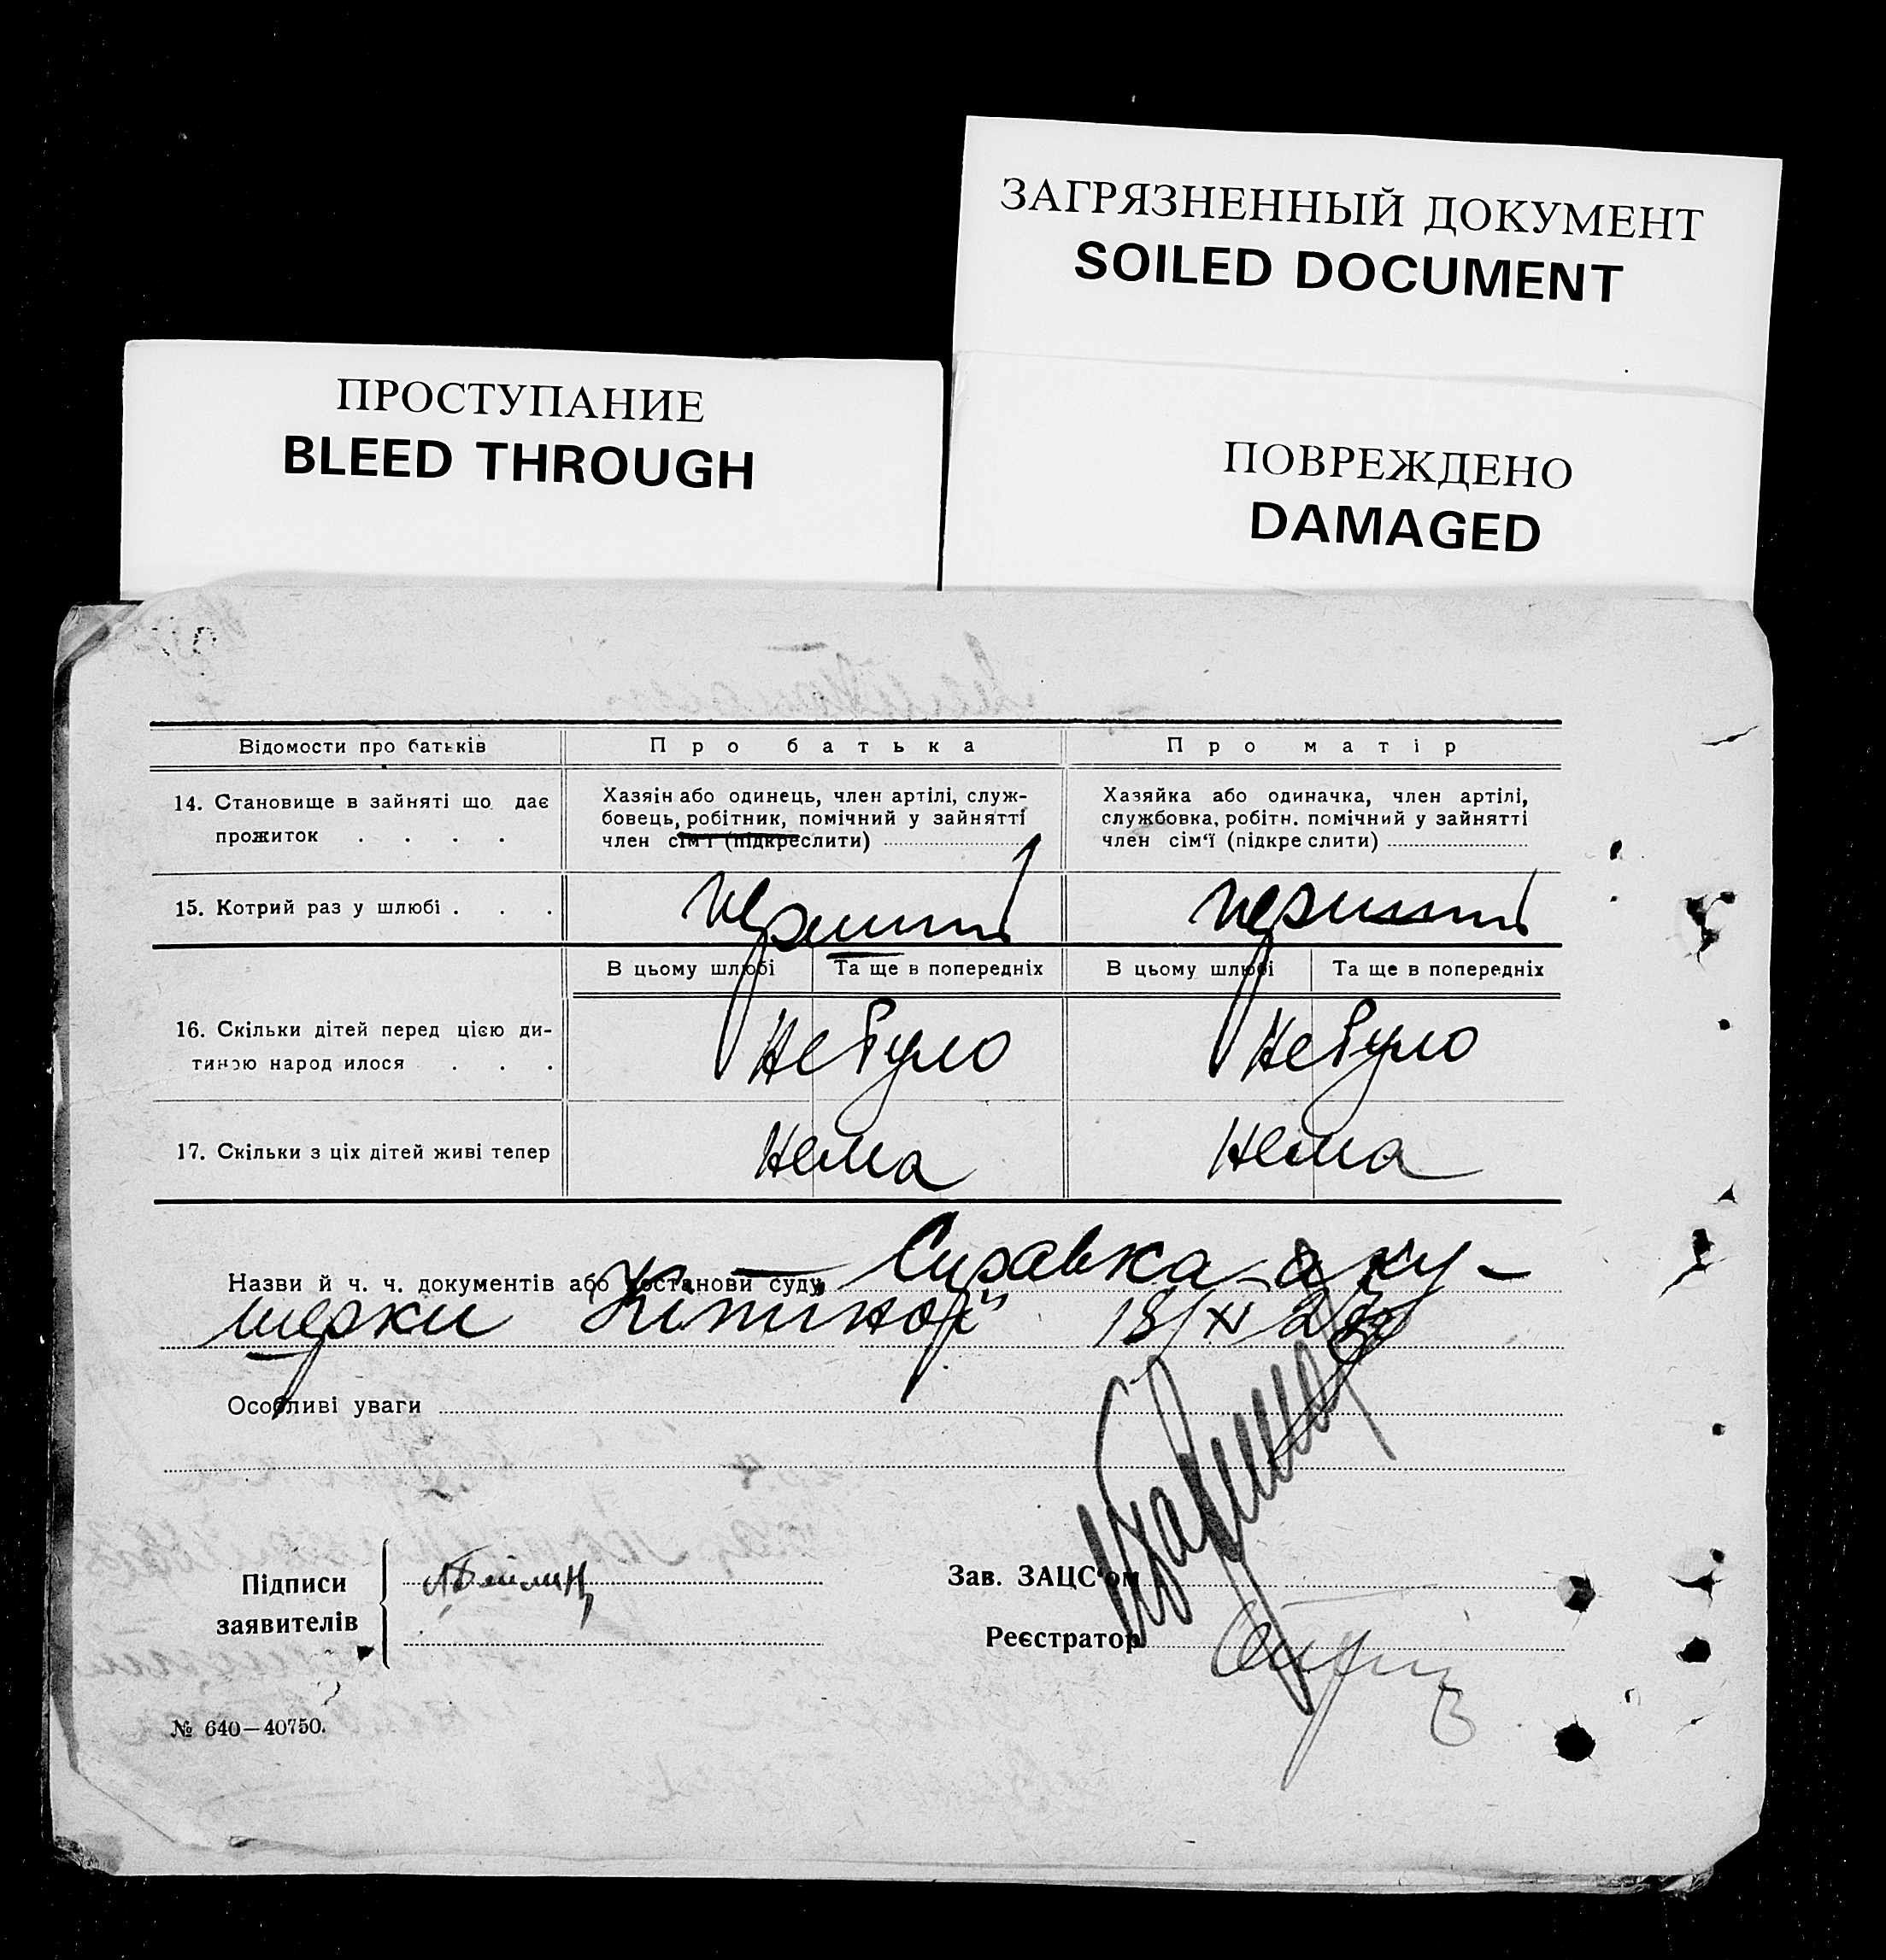 ЗАГРЯЗНЕННЫЙ ДОКУМЕНТ
SOILED DOCUMENT
ПРОСТУПАНИЕ
BLEED THROUGH
ПОВРЕЖДЕНО
DAMAGED
Відомости про батьків
Про батька
Про матір
14. Становище в зайняті що дає
прожиток . . . .
Хазяін або одинець, член артілі, служ-
бовець, робітник, помічний у зайнятті
член сім'ї (підкреслити)
Хазяйка або одиначка, член артілі,
службовка, робітн. помічний у зайнятті
член сім'ї (підкреслити)
15. Котрий раз у шлюбі . . .
перший
перший
В цьому шлюбі
Та ще в попередніх
В цьому шлюбі
Та ще в попередніх
16. Скільки дітей перед цією ди-
тиною народилося . . .
не було
не було
17. Скільки з ціх дітей живі тепер
нема
нема
Назви й ч. ч. документів або постанови суду
Справка аку-
шерки 18/XI
Особливі уваги
Підписи
заявителів
Зав. ЗАЦС'ом
Реєстратор
№ 640—40750.